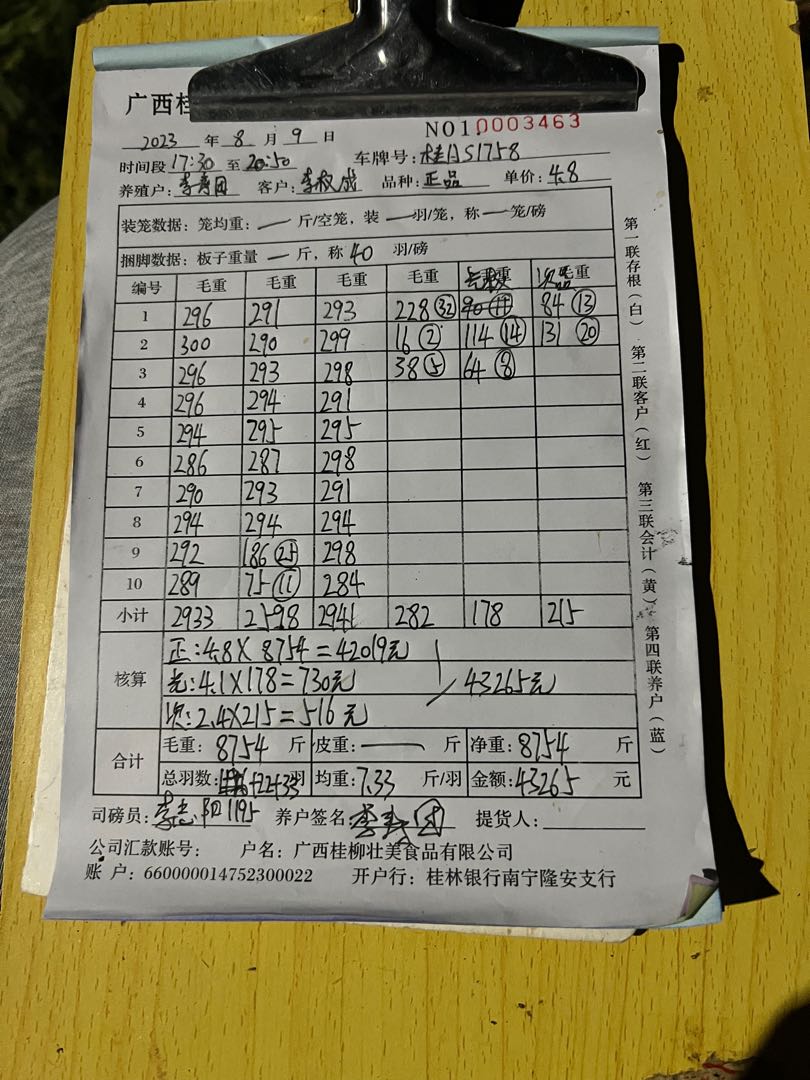 广西桂
NO1.0003463
2023 年 8 月 9 日
时间段 17:30 至 20:50 车牌号: 桂AS1758
养殖户: 李寿团 客户: 李权成 品种: 正品 单价: 4.8
装笼数据: 笼均重: — 斤/空笼, 装 — 羽/笼, 称 — 笼/磅
捆脚数据: 板子重量 — 斤, 称 40 羽/磅
编号 毛重 毛重 毛重 毛重 毛重 次品 毛重
1 296 291 293 228 (32) 90 (11) 84 (13)
2 300 290 299 16 (2) 114 (14) 131 (20)
3 296 293 298 38 (5) 64 (8)
4 296 294 291
5 294 295 295
6 286 287 298
7 290 293 291
8 294 294 294
9 292 186 (25) 298
10 289 75 (11) 284
小计 2933 2598 2941 282 178 215
核算
正: 4.8 X 8754 = 42019元
光: 4.1 X 178 = 730元 43265元
次: 2.4 X 215 = 516 元
合计
毛重: 8754 斤 皮重: — 斤 净重: 8754 斤
总羽数: 羽 均重: 7.33 斤/羽 金额: 43265 元
司磅员: 李志阳 1195 养户签名: 李寿团 提货人:
公司汇款账号: 户名: 广西桂柳壮美食品有限公司
账 户: 660000014752300022 开户行: 桂林银行南宁隆安支行
第一联存根(白) 第二联客户(红) 第三联会计(黄) 第四联养户(蓝)